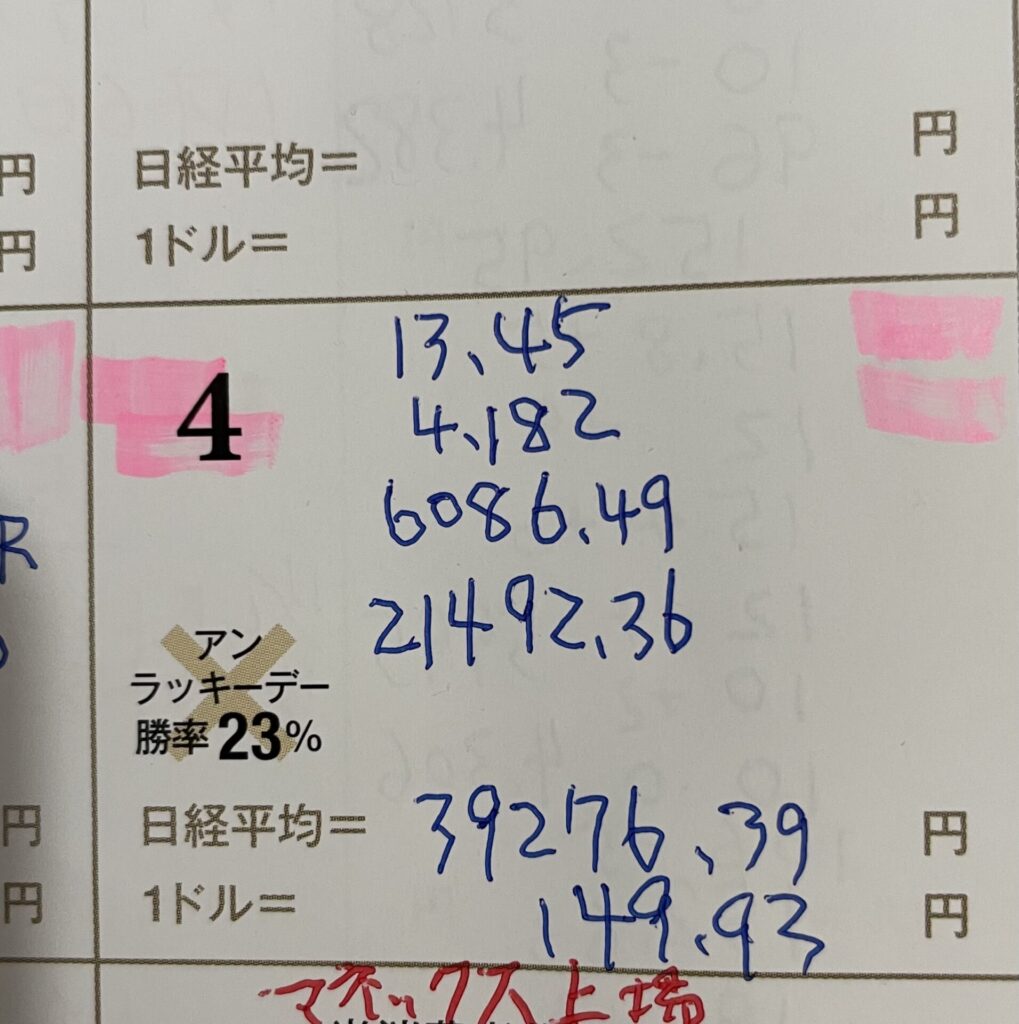 円
日経平均＝ 円
円
1ドル＝ 円
13.45
4
4.182
6086.49
R
21492.36
アン
ラッキーデー
勝率23%
円
日経平均＝ 39276.39 円
円
1ドル＝ 149.93 円
マネックス上場